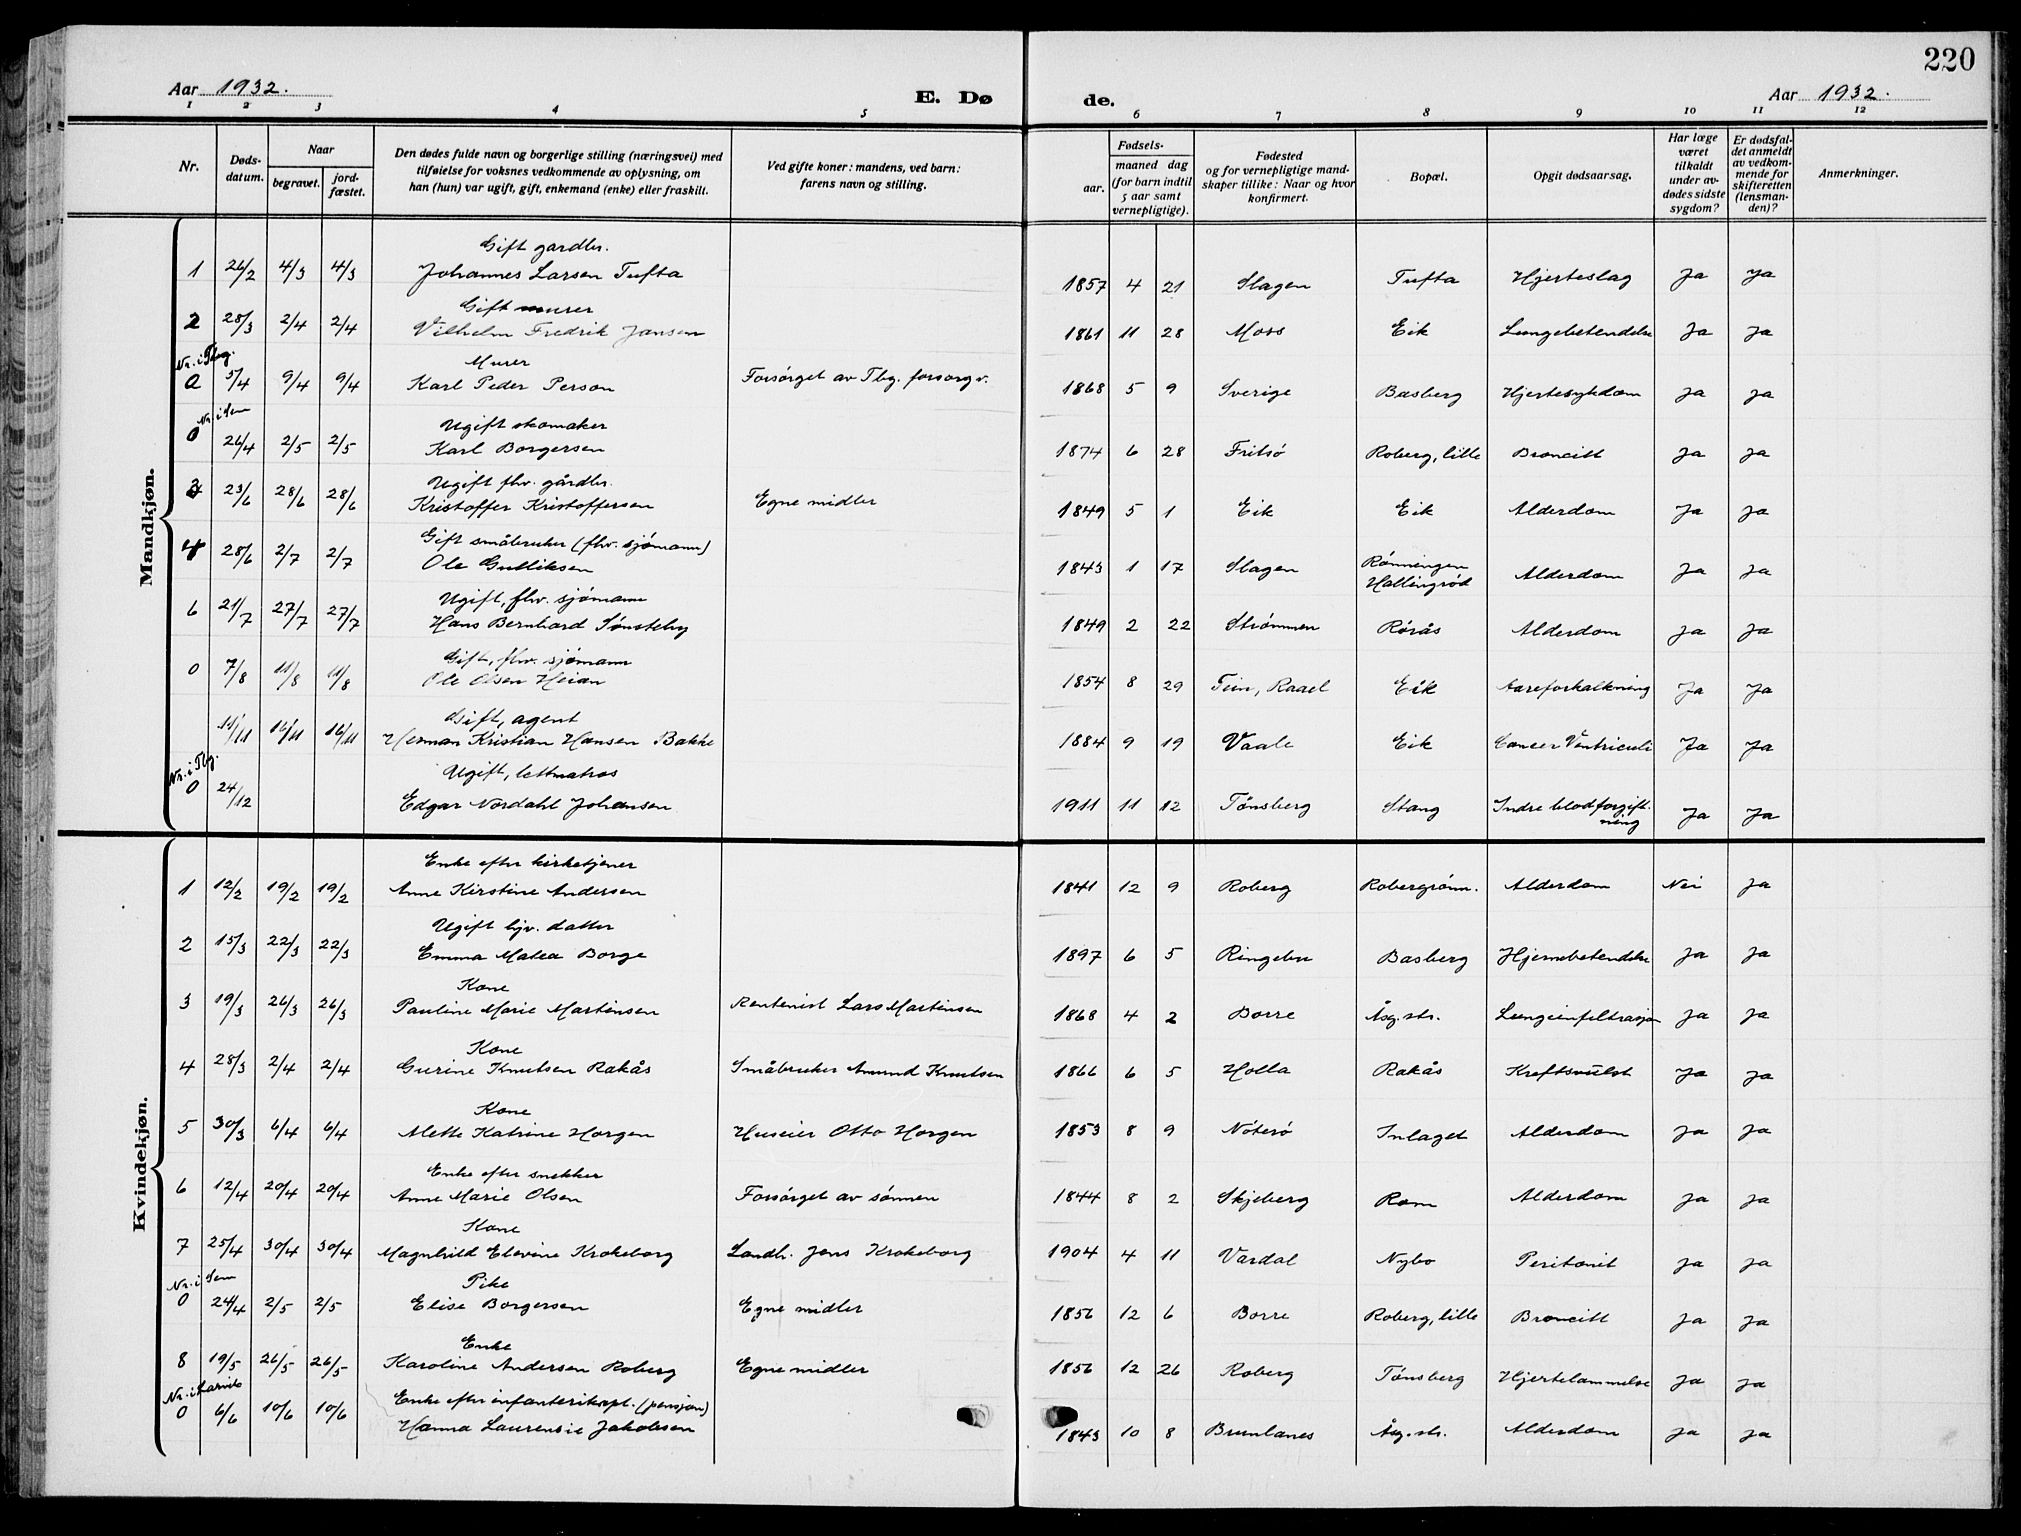 220
Aar 1932. E. Dø de. Aar 1932.
1 2 3 4 5 6 7 8 9 10 11 12
Nr. Døds-datum. Naar begravet. jord-fæstet. Den dødes fulde navn og borgerlige stilling (næringsvei) med tilføielse for voksnes vedkommende av oplysning, om han (hun) var ugift, gift, enkemand (enke) eller fraskilt. Ved gifte koner: mandens, ved barn: farens navn og stilling. Fødsels- aar. maaned dag (for barn indtil 5 aar samt vernepligtige). Fødested og for vernepligtige mand-skaper tillike: Naar og hvor konfirmert. Bopæl. Opgit dødsaarsag. Har læge været tilkaldt under av-dødes sidste sygdom? Er dødsfal-det anmeldt av vedkom-mende for skifteretten (lensman-den)? Anmerkninger.
Mandkjøn.
Gift gardbr.
1 26/2 4/3 4/3 Johannes Larsen Tufta 1857 4 21 Slagen Tufta Hjerteslag Ja Ja
Gift murer
2 28/3 2/4 2/4 Vilhelm Fredrik Jansen 1861 11 28 Moss Eik Lungebetendelse Ja Ja
Nr. i Tbg. Murer
5/4 9/4 9/4 Karl Peder Person Forsørget av Tbg. forsorgv. 1868 5 9 Sverige Basberg Hjertesykdom Ja Ja
Nr. i Sem Ugift skomaker
0 26/4 2/5 2/5 Karl Borgersen 1874 6 28 Fritsø Roberg, lille Broncitt Ja Ja
Ugift fhv. gårdbr.
3 23/6 28/6 28/6 Kristoffer Kristoffersen Egne midler 1849 5 1 Eik Eik Alderdom Ja Ja
Gift småbruker (fhv. sjømann)
4 28/6 2/7 2/7 Ole Gulliksen 1843 1 17 Slagen Rønningen Hallingrød Alderdom Ja Ja
Ugift, fhv. sjømann
6 21/7 27/7 27/7 Hans Bernhard Sønsteby 1849 2 22 Strømmen Rørås Alderdom Ja Ja
Gift, fhv. sjømann
0 7/8 11/8 11/8 Ole Olsen Heian 1854 8 29 Tinn, Raael Eik Aareforkalkning Ja Ja
Gift, agent
11/11 16/11 16/11 Herman Kristian Hansen Bakke 1884 9 19 Vaale Eik Cancer Ventriculi Ja Ja
Nr. i Tbg. Ugift, lettmatros
0 24/12 Edgar Nordahl Johansen 1911 11 12 Tønsberg Stang Indre blodforgift-ning Ja Ja
Kvindekjøn.
Enke efter kirketjener
1 12/2 19/2 19/2 Anne Kirstine Andersen 1841 12 9 Roberg Robergrønn. Alderdom Nei Ja
Ugift hjv. datter
2 15/3 22/3 22/3 Emma Matea Borge 1897 6 5 Ringebu Basberg Hjernebetendelse Ja Ja
Kone
3 19/3 26/3 26/3 Pauline Marie Martinsen Rentenist Lars Martinsen 1868 4 2 Borre Åsg. str. Lungeinfiltrasjon Ja Ja
Kone
4 28/3 2/4 2/4 Gurine Knutsen Rakås Småbruker Amund Knutsen 1866 6 5 Holla Rakås Kreftsvulst Ja Ja
Kone
5 30/3 6/4 6/4 Mette Katrine Horgen Huseier Otto Horgen 1853 8 9 Nøterø Inlaget Alderdom Ja Ja
Enke efter snekker
6 12/4 20/4 20/4 Anne Marie Olsen Forsørget av sønnen 1844 8 2 Skjeberg Rom Alderdom Ja Ja
Kone
7 25/4 30/4 30/4 Magnhild Elevine Krokeborg Landh. Jens Krokeborg 1904 4 11 Vardal Nybo Peritonit Ja Ja
Nr. i Sem Pike
0 24/4 2/5 2/5 Elise Borgersen Egne midler 1856 12 6 Borre Roberg, lille Broncitt Ja Ja
Enke
8 19/5 26/5 26/5 Karoline Andersen Roberg Egne midler 1856 12 26 Roberg Tønsberg Hjertelammelse Ja Ja
Nr. i Larvik Enke efter infanterikapt. (pensjon)
0 6/6 10/6 10/6 Hanna Laurensie Jakobsen 1843 10 8 Brunlanes Åsg. str. Alderdom Ja Ja